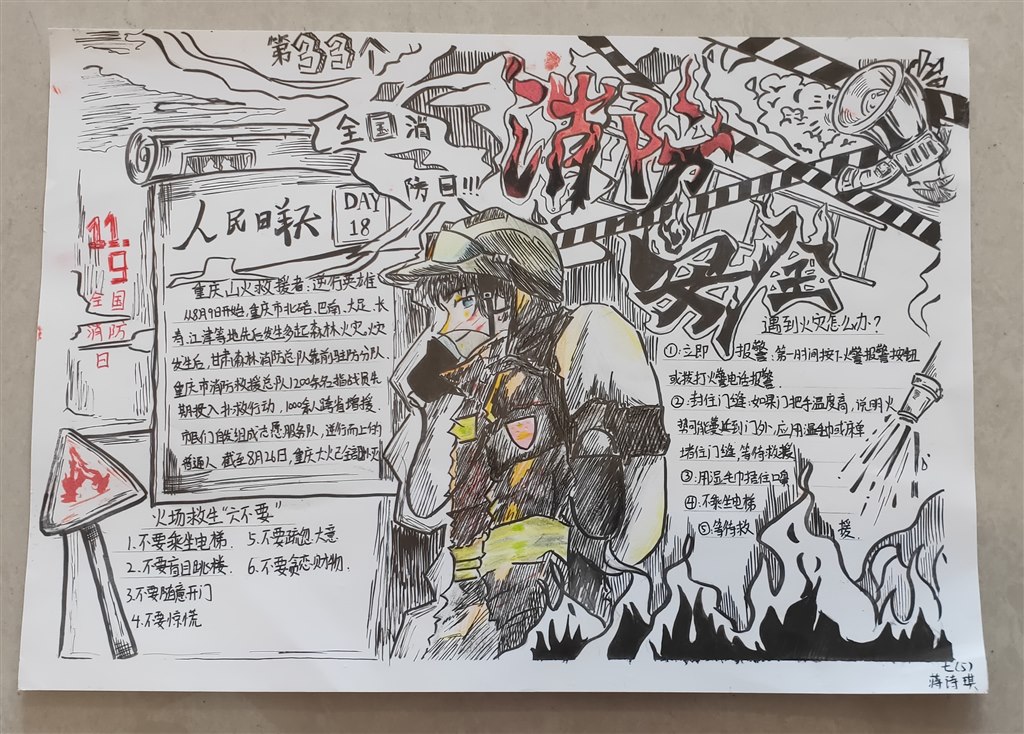 第33个
全国消
防日!!!
消防
安全
11.
9
全国
消防
日
人民日
DAY
18
重庆山火救援者:逆行英雄
从8月9日开始,重庆市北碚、巴南、大足、长
寿、江津等地先后发生多起森林火灾,火灾
发生后,甘肃森林消防总队靠前驻防分队、
重庆市消防救援总队1200余名指战员先
期投入扑救行动,1000余人跨省增援.
市民们自发组成志愿服务队,逆行而上的
普通人,截至8月26日,重庆大火已全部扑灭
火场救生“六不要”
1.不要乘坐电梯.
2.不要盲目跳楼.
3.不要随意开门
4.不要惊慌
5.不要疏忽大意
6.不要贪恋财物.
遇到火灾怎么办?
①立即报警,第一时间按下火警报警按钮
或拨打火警电话报警.
②封住门缝:如果门把手温度高,说明火
势可能蔓延到门外,应用湿巾或床单
堵住门缝,等待救援
③用湿毛巾捂住口鼻
④不乘坐电梯
⑤等待救援.
七(5)
蒋诗琪